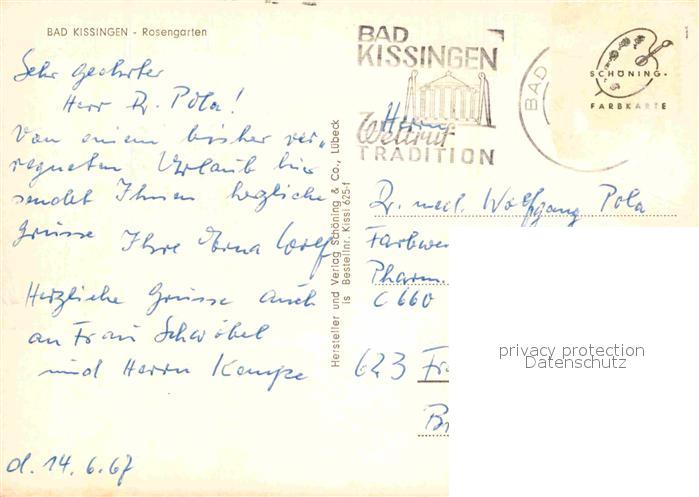 BAD KISSINGEN - Rosengarten
Sehr geehrter
Herr Dr. Pola!
Von einem bisher ver-
regneten Urlaub hier
sendet Ihnen herzliche
Grüsse Ihre Erna Wolf
Herzliche Grüsse auch
an Frau Schwöbel
und Herrn Kempe
d. 14.6.67
Hersteller und Verlag Schöning & Co., Lübeck
is Bestellnr. Kissi 625-f
BAD
KISSINGEN
Weltruf
TRADITION
BAD
SCHÖNING
FARBKARTE
Herrn
Dr. med. Wolfgang Pola
Farbwe
Pharm.
C 660
623 Fr
privacy protection
Datenschutz